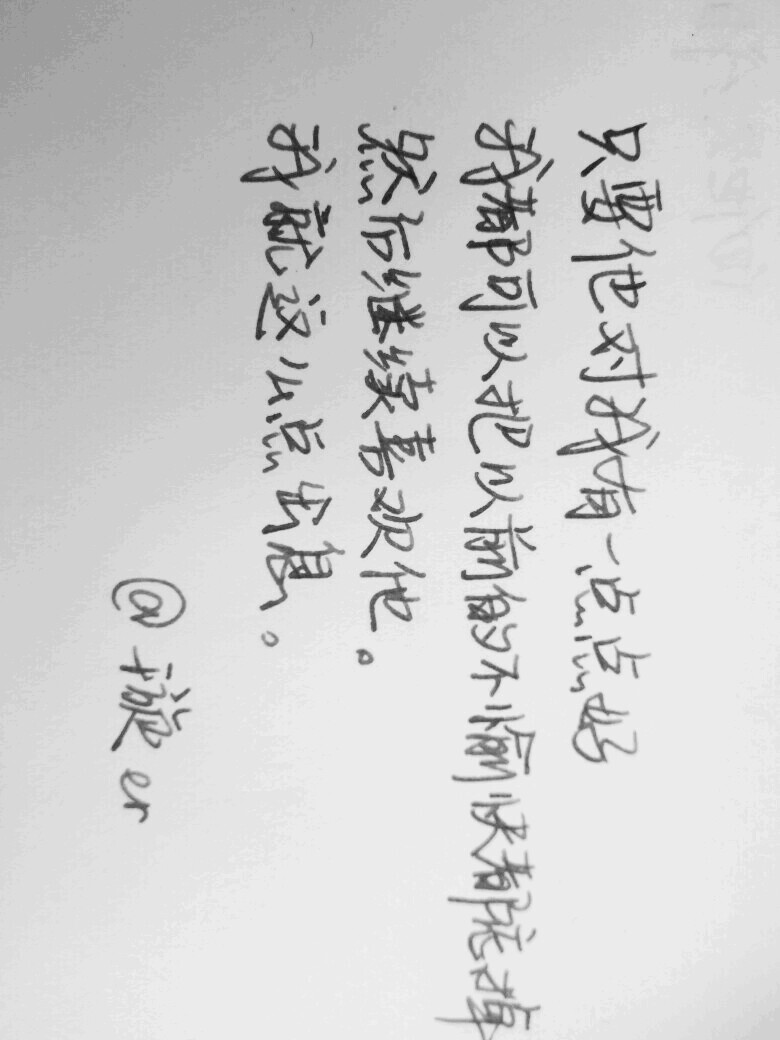 只要他对我有一点点好
我都可以把以前的不愉快都忘掉
然后继续喜欢他。
我就这么点出息。
@璇er